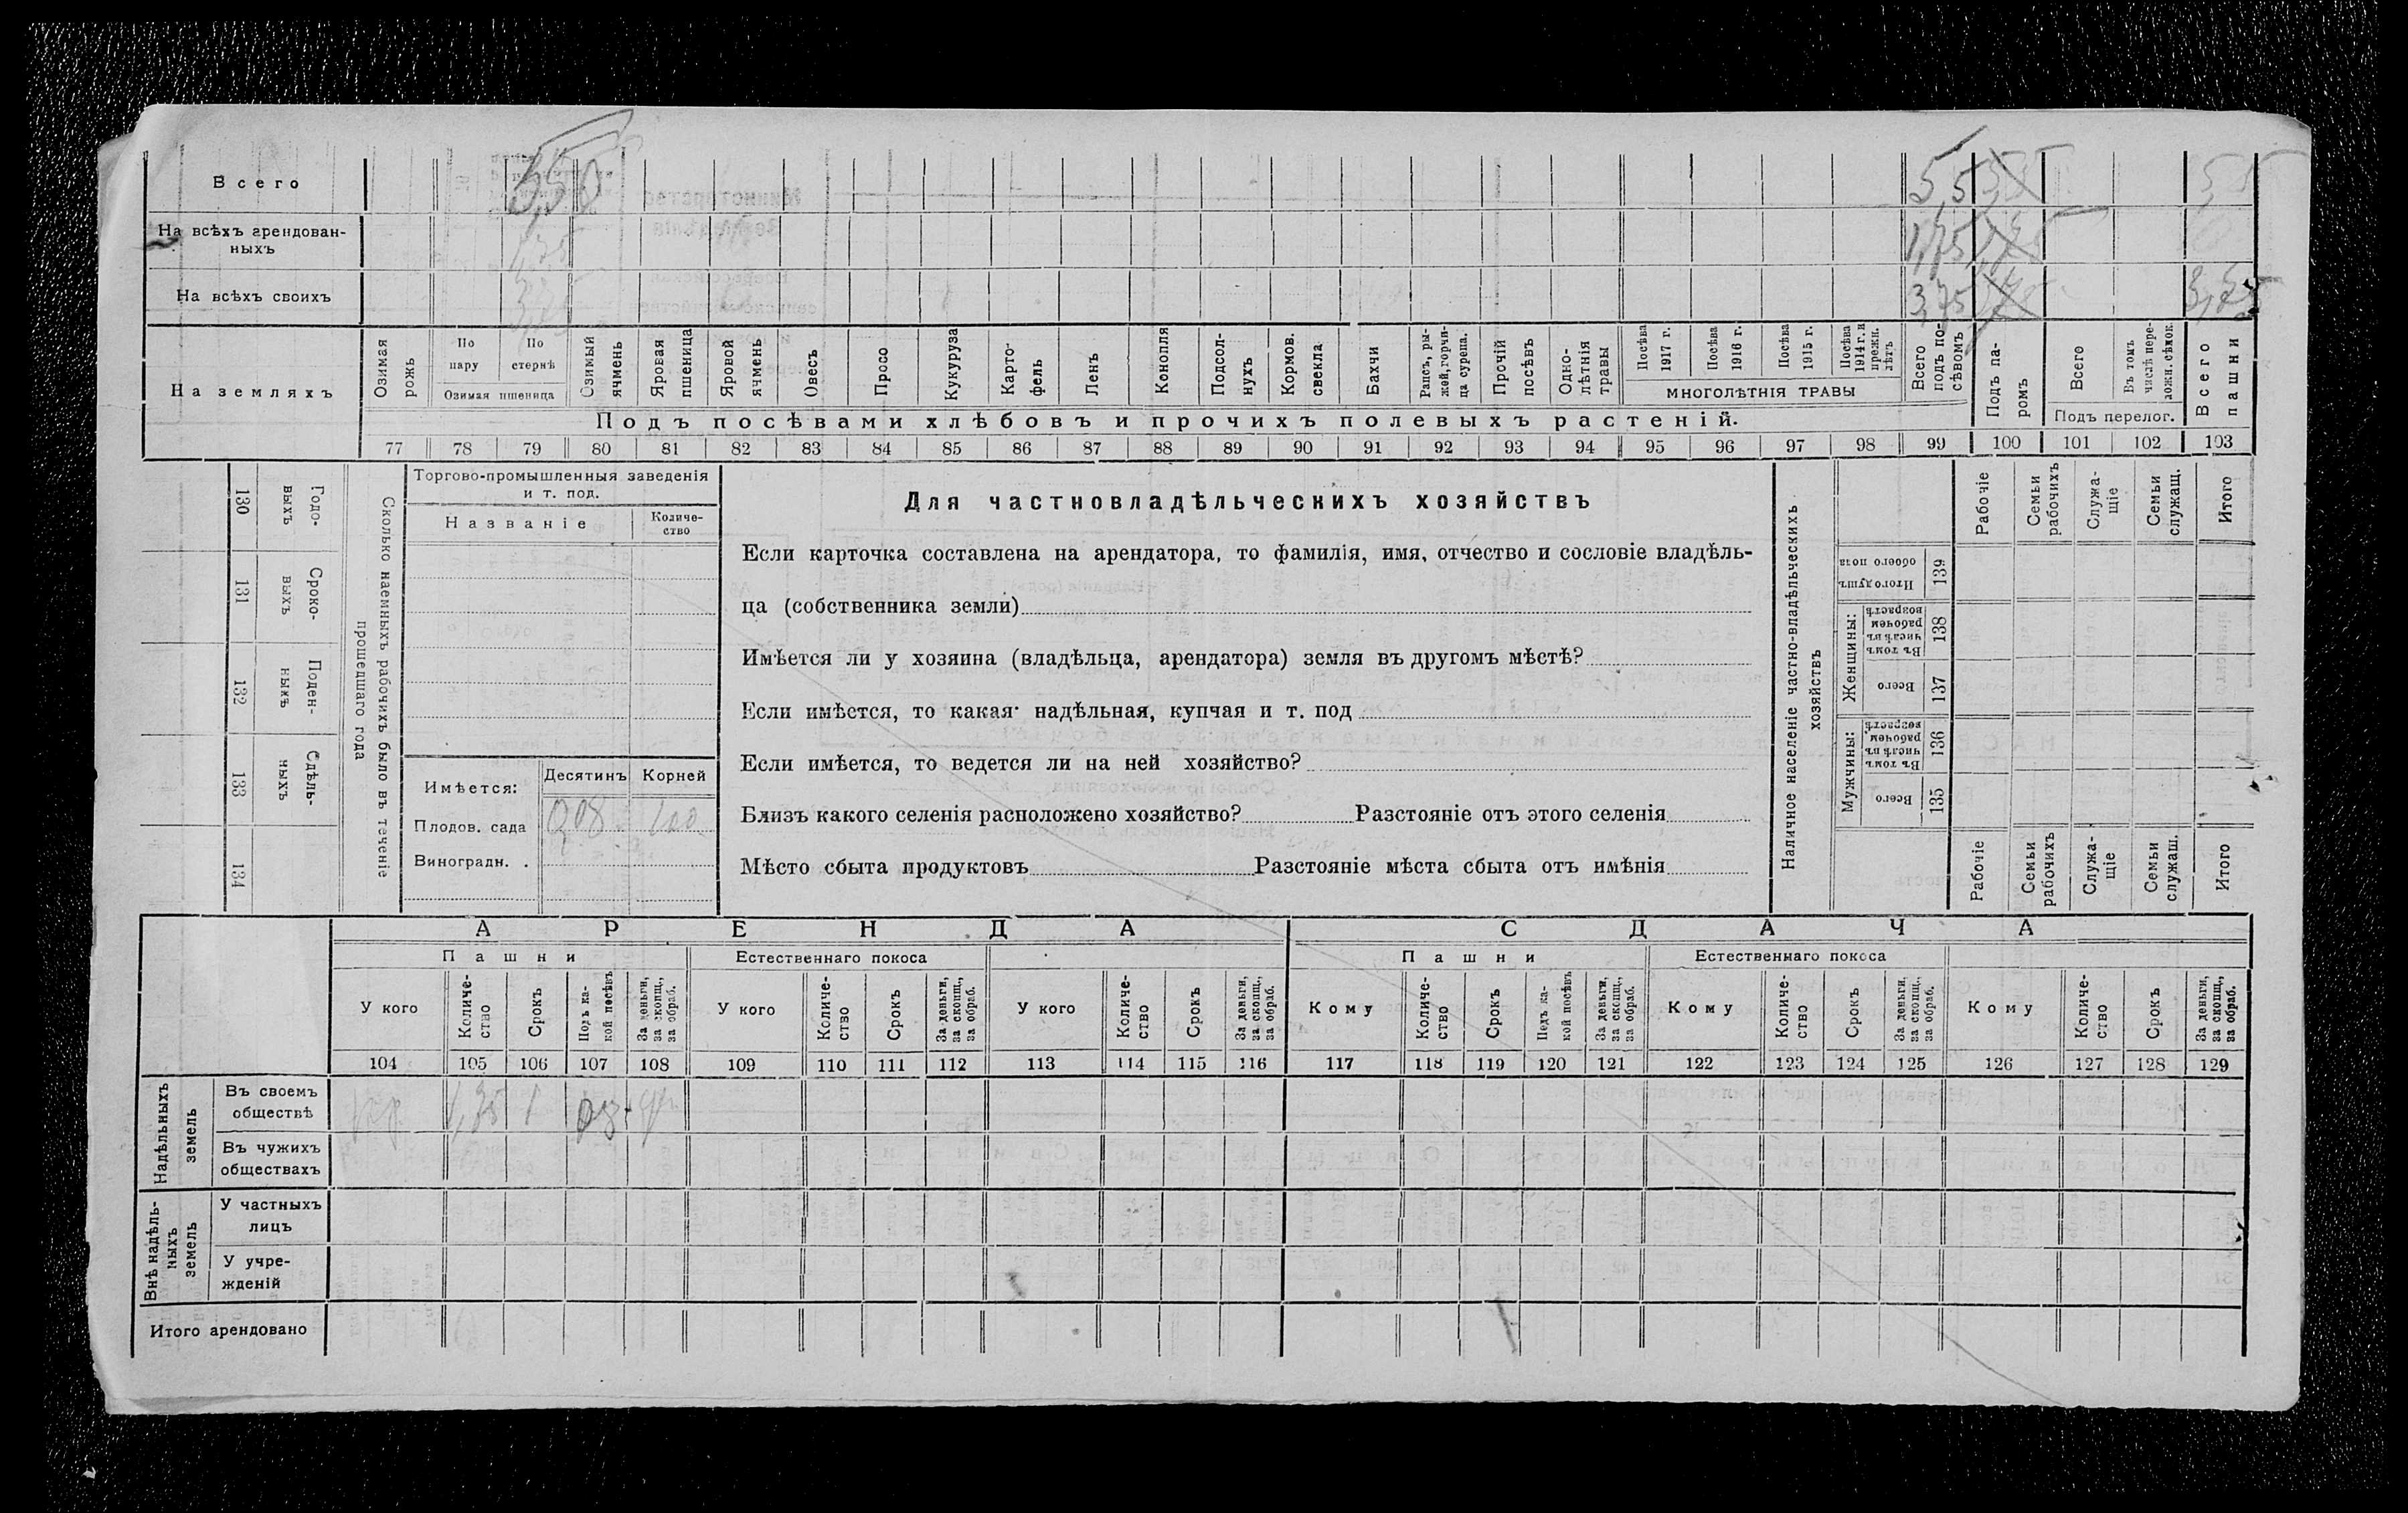 Всего 5,50 5,5 5,5
На всѣхъ арендован-
ныхъ 1,75 1,75
На всѣхъ своихъ 3,75 3,75
На земляхъ
Озимая рожь
По пару
По стернѣ
Озимая пшеница
Озимый ячмень
Яровая пшеница
Яровой ячмень
Овесъ
Просо
Кукуруза
Карто-
фель
Ленъ
Конопля
Подсол-
нухъ
Кормов.
свекла
Бахчи
Рапсъ, ры-
жей, горчи-
ца сурепа.
Прочій
посѣвъ
Одно-
лѣтнія
травы
Посѣва
1917 г.
Посѣва
1916 г.
Посѣва
1915 г.
Посѣва
1914 г. и
прежн.
лѣтъ
МНОГОЛѢТНІЯ ТРАВЫ
Всего
подъ по-
сѣвомъ
Подъ па-
ромъ
Всего
Въ томъ
числѣ пере-
ложн. сѣнок.
Подъ перелог.
Всего
пашни
Подъ посѣвами хлѣбовъ и прочихъ полевыхъ растеній.
77 78 79 80 81 82 83 84 85 86 87 88 89 90 91 92 93 94 95 96 97 98 99 100 101 102 103
Сколько наемныхъ рабочихъ было въ теченіе
прошедшаго года
Годо-
выхъ
130
Сроко-
выхъ
131
Поден-
ныхъ
132
Сдѣль-
ныхъ
133
134
Торгово-промышленныя заведенія
и т. под.
Названіе
Количе-
ство
Имѣется: Десятинъ Корней
Плодов. сада 0,08 100
Виноградн. .
Для частновладѣльческихъ хозяйствъ
Если карточка составлена на арендатора, то фамилія, имя, отчество и сословіе владѣль-
ца (собственника земли)
Имѣется ли у хозяина (владѣльца, арендатора) земля въ другомъ мѣстѣ?
Если имѣется, то какая· надѣльная, купчая и т. под
Если имѣется, то ведется ли на ней хозяйство?
Близъ какого селенія расположено хозяйство? Разстояніе отъ этого селенія
Мѣсто сбыта продуктовъ Разстояніе мѣста сбыта отъ имѣнія
Наличное населеніе частно-владѣльческихъ
хозяйствъ
Рабочіе
Семьи
рабочихъ
Служа-
щіе
Семьи
служащ.
Итого
Итого душъ
обоего пола
139
Женщины:
Въ томъ
числѣ въ
рабочемъ
возрастѣ
138
Всего
137
Мужчины:
Въ томъ
числѣ въ
рабочем.
возрастѣ
136
Всего
135
Рабочіе
Семьи
рабочихъ
Служа-
щіе
Семьи
служащ.
Итого
АРЕНДА СДАЧА
Пашни Естественнаго покоса Пашни Естественнаго покоса
У кого
Количе-
ство
Срокъ
Подъ ка-
кой посѣвъ
За деньги,
за скопщ.,
за обраб.
У кого
Количе-
ство
Срокъ
За деньги,
за скопщ.,
за обраб.
У кого
Количе-
ство
Срокъ
За деньги,
за скопщ.,
за обраб.
Кому
Количе-
ство
Срокъ
Подъ ка-
кой посѣвъ
За деньги,
за скопщ.,
за обраб.
Кому
Количе-
ство
Срокъ
За деньги,
за скопщ.,
за обраб.
Кому
Количе-
ство
Срокъ
За деньги,
за скопщ.,
за обраб.
104 105 106 107 108 109 110 111 112 113 114 115 116 117 118 119 120 121 122 123 124 125 126 127 128 129
Надѣльныхъ
земель
Въ своемъ
обществѣ 1 оз.
Въ чужихъ
обществахъ
Внѣ надѣль-
ныхъ
земель
У частныхъ
лицъ
У учре-
жденій
Итого арендовано